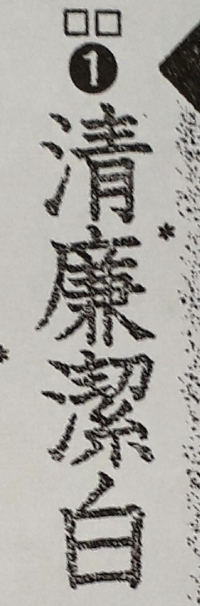 □□
❶
清廉潔白